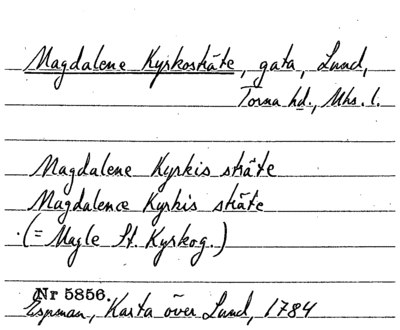 Magdalene Kyrkosträte, gata, Lund,
Torna hd., Mhs. l.
Magdalene Kyrkis sträte
Magdalenæ Kyrkis sträte
(= Magle St. Kyrkog.)
Nr 5856.
Espman, Karta över Lund, 1784